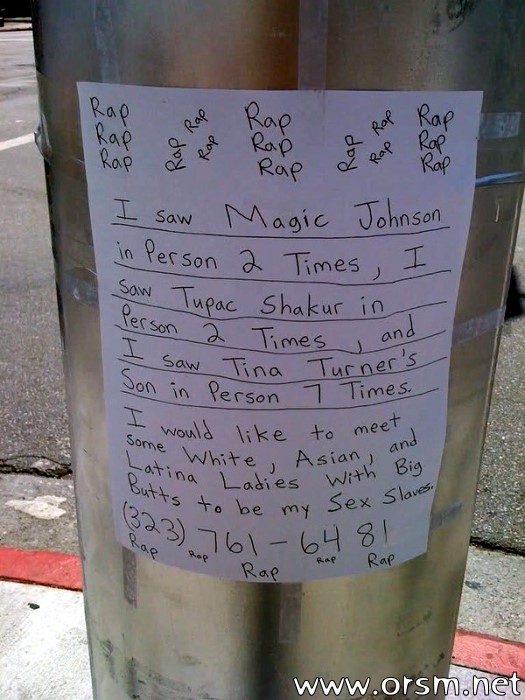 Rap Rap Rap Rap
Rap Rap Rap Rap Rap Rap
Rap Rap Rap Rap
I saw Magic Johnson
in Person 2 Times, I
saw Tupac Shakur in
Person 2 Times, and
I saw Tina Turner's
Son in Person 7 Times.
I would like to meet
some White, Asian, and
Latina Ladies With Big
Butts to be my Sex Slaves.
(323) 761-6481
Rap Rap Rap Rap Rap
www.orsm.net